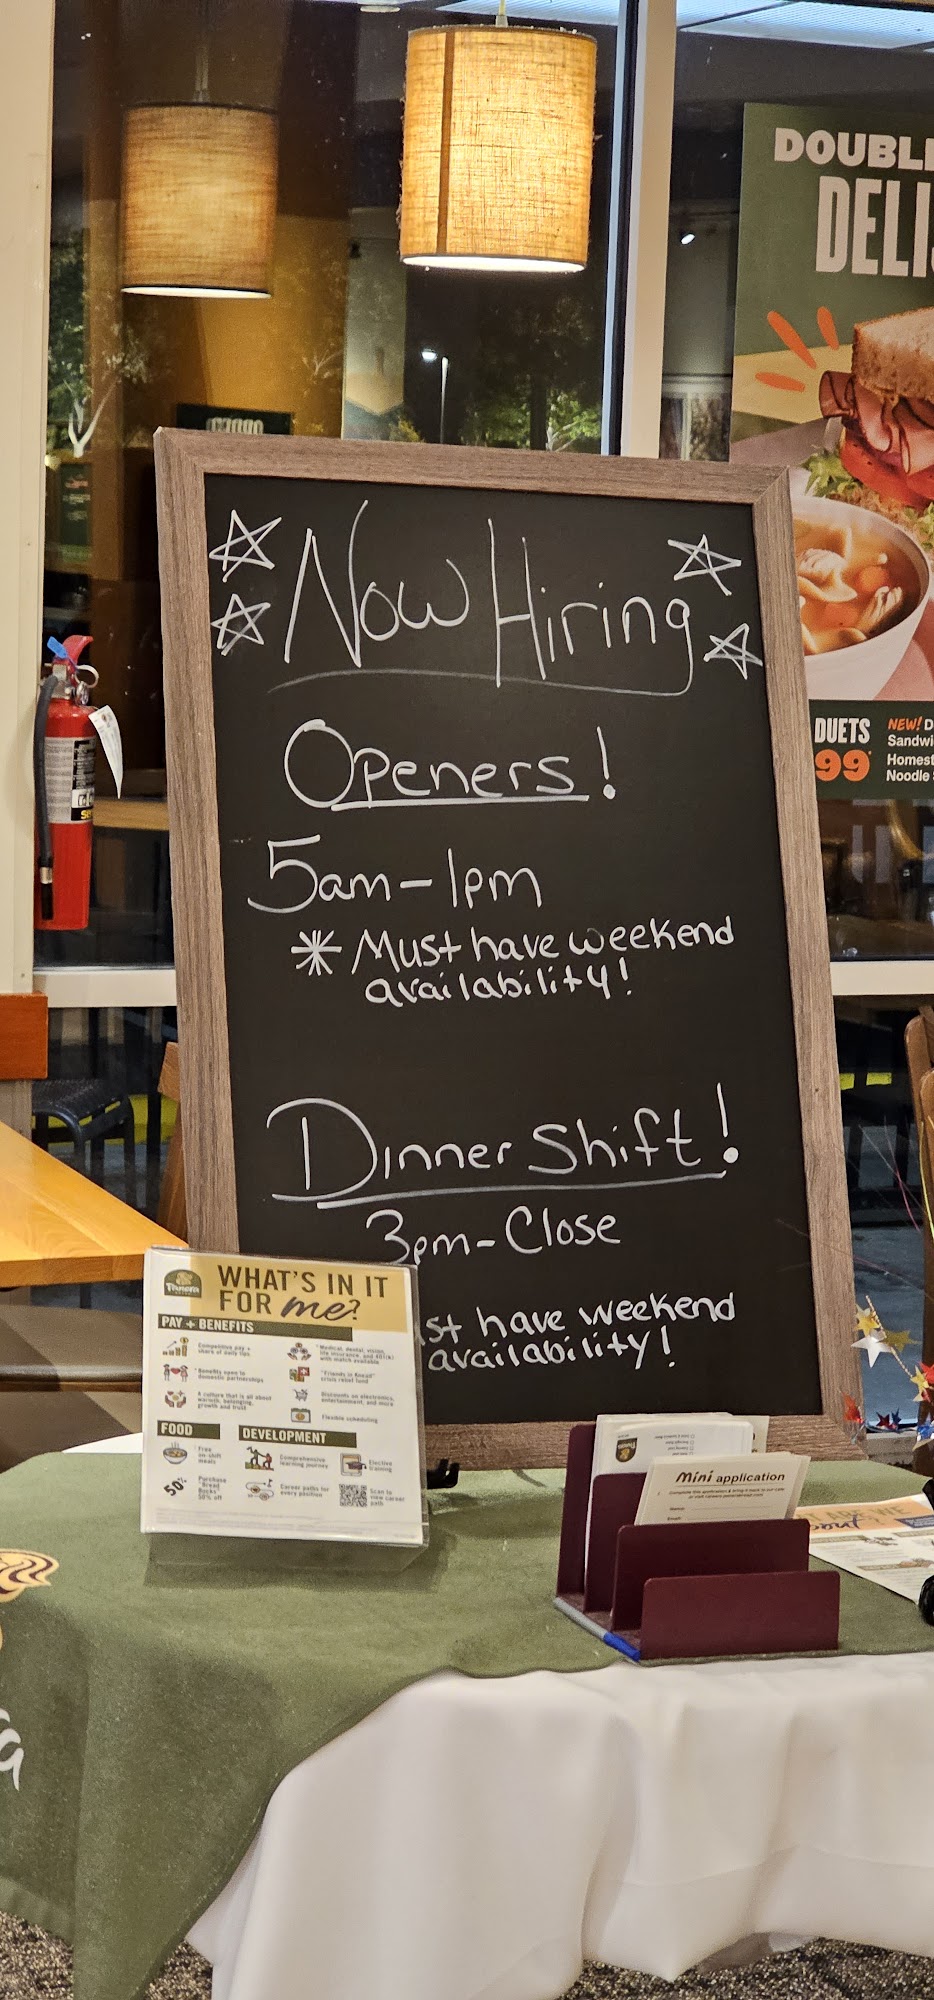 DOUBL
DELI
Now Hiring
Openers!
5am-1pm
* Must have weekend
availability!
Dinner Shift!
3pm-Close
st have weekend
availability!
DUETS
99
NEW! D
Sandwi
Homest
Noodle
Panera
WHAT'S IN IT
FOR me?
PAY + BENEFITS
Competitive pay +
share of daily tips
Medical, dental, vision,
life insurance, and 401(k)
with match available
Benefits open to
domestic partnerships
"Friends in Knead"
crisis relief fund
A culture that is all about
warmth, belonging,
growth and trust
Discounts on electronics,
entertainment, and more
Flexible scheduling
FOOD
Free
on-shift
meals
50%
Purchase
"Bread
Bucks"
50% off
DEVELOPMENT
Comprehensive
learning journey
Elective
training
Career paths for
every position
Scan to
view career
path
Mini application
Complete this application & bring it back to our cafe
or visit careers.panerabread.com
Name:
Email: